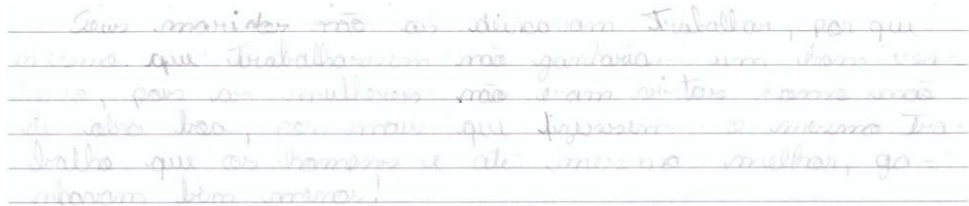 Seus maridos não as deixavam Trabalhar, por que
mesmo que trabalhassem não ganharia um bom
pois as mulheres não eram vistas como mão
de obra boa, por mais que fizessem o mesmo Tra-
balho que os homens e até mesmo melhor, ga-
nhavam bem menos!